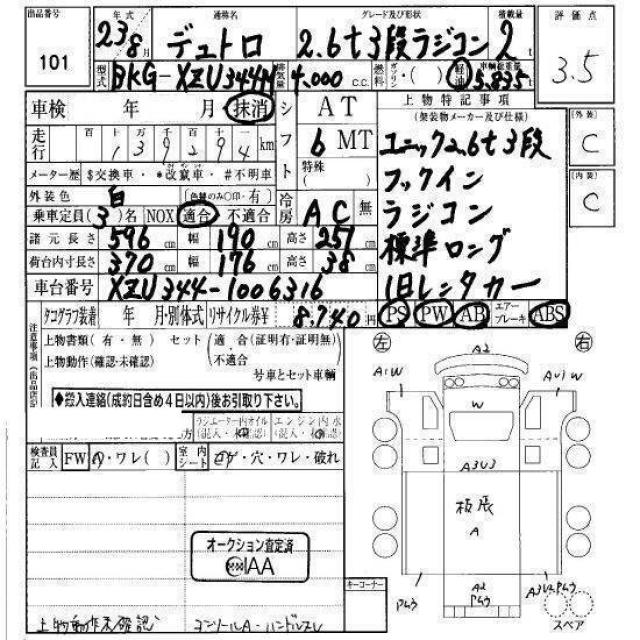 出品番号 年式 通称名 グレード及び形状 積載量 評価点
101 23年8月 デュトロ 2.6t3段ラジコン 2t 3.5
型式 BKG-XZU344M 排気量 4,000 c.c. 燃料 ガソリン・( ) 軽油 車輌総重量 5,835t
車検 年 月 抹消 シフト AT 上物特記事項
(架装物メーカー及び仕様)
走行 百 十 万 千 百 十
139294km
6 MT
特殊( )
[外装] C
[内装] C
メーター歴 $交換車・*改竄車・#不明車
外装色 白 [色替のみ○印・有] 冷房 AC 無
乗車定員(3)名 NOX 適合 不適合
諸元長さ 596cm 幅 190cm 高さ 257cm
荷台内寸長さ 370cm 幅 176cm 高さ 38cm
車台番号 XZU344-1006316
ユニック2.6t3段
フックイン
ラジコン
標準ロング
1日レンタカー
タコグラフ装着 年 月・別体式 リサイクル券¥ 8,740円
PS PW AB エアーブレーキ ABS
注意事項(出品店記
上物書類(有・無) セット(適合(証明有・証明無)
・不適合
上物動作(確認・未確認) 号車とセット車輌
入連絡(成約日含め4日以内)後お引取り下さい。
方 ラジエーター内オイル(混入・ 確認) エンジン内水(混入・
検査員記入 FW ・ワレ( ) 室内シート コゲ・穴・ワレ・破れ
オークション査定済
IAA
コーナー
左 右
A2
A1W AU1W
W
A3U3
板張
A
A2
PムラA3U2Pムラ
Pムラ
スペア
上物動作未確認 コンソールA・ハンドルスレ